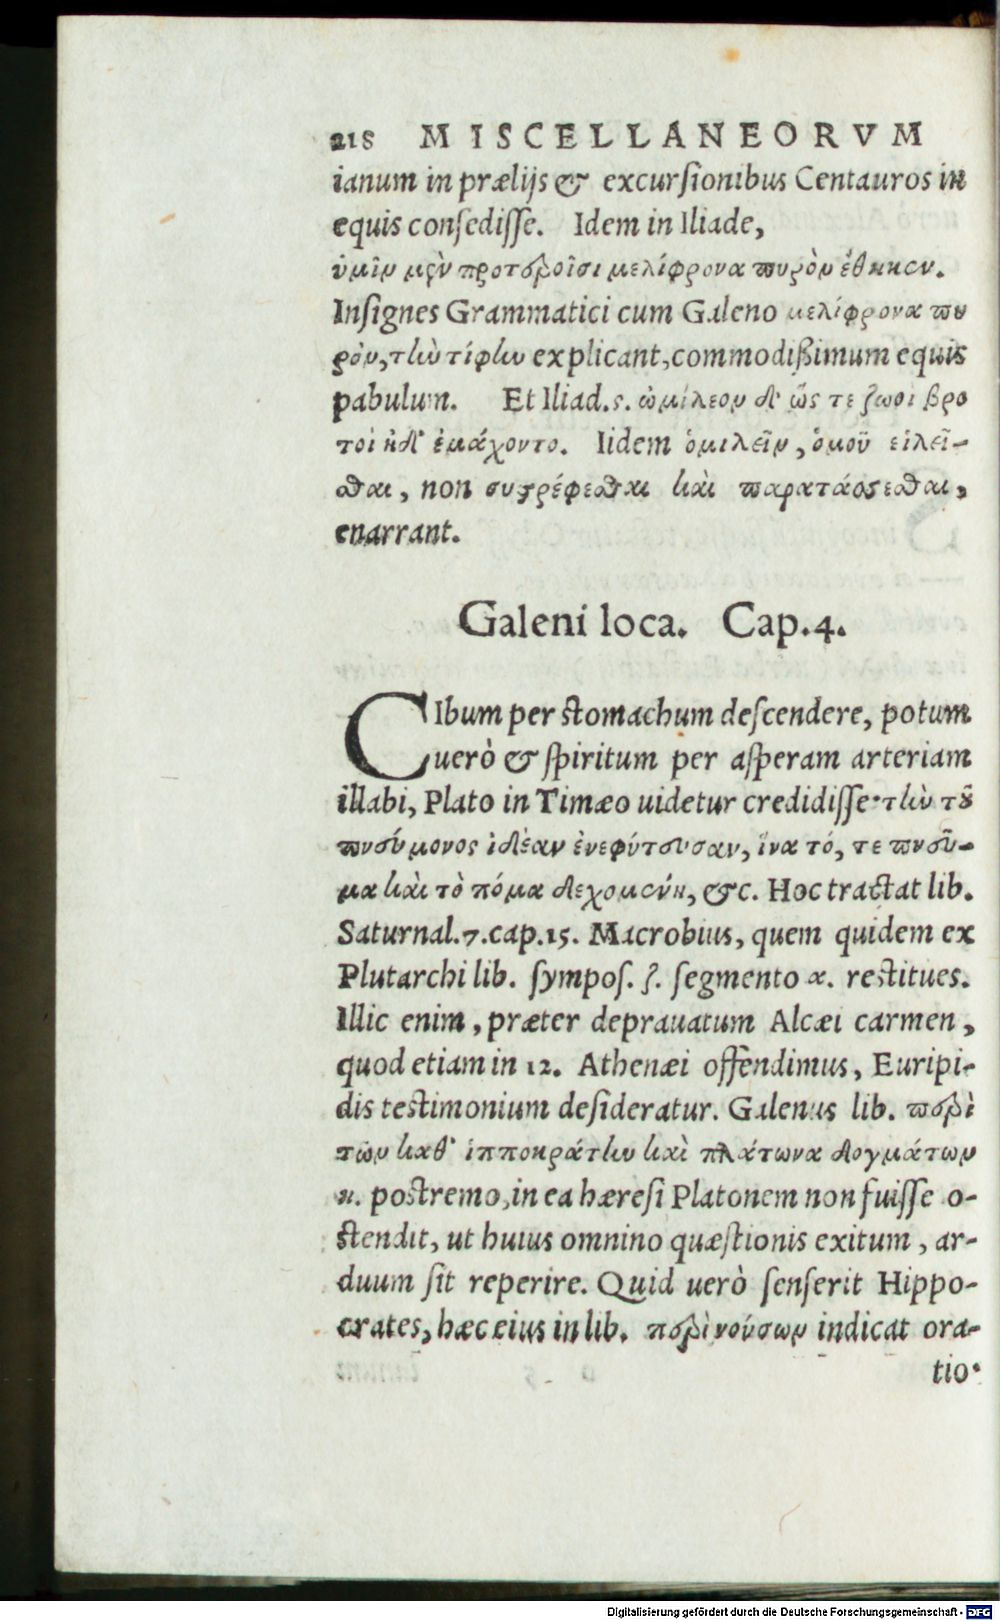 218 MISCELLANEORVM
ianum in prælijs & excursionibus Centauros in
equis consedisse. Idem in Iliade,
ὑμῖν μὲν προτέροισι μελίφρονα πυρὸν ἔθηκεν.
Insignes Grammatici cum Galeno μελίφρονα πυ
ρὸν, τὴν τίφην explicant, commodißimum equis
pabulum. Et Iliad. ς. ὡμίλεον δ' ὥς τε ζωοὶ βρο
τοὶ ἠδ' ἐμάχοντο. Iidem ὁμιλεῖν, ὁμοῦ εἰλεῖ-
σθαι, non συστρέφεσθαι καὶ παρατάσσεσθαι,
enarrant.
Galeni loca. Cap. 4.
CIbum per stomachum descendere, potum
uerò & spiritum per asperam arteriam
illabi, Plato in Timæo uidetur credidisse· τὴν τοῦ
πνεύμονος ἰδέαν ἐνεφύτευσαν, ἵνα τό, τε πνεῦ-
μα καὶ τὸ πόμα δεχομένη, &c. Hoc tractat lib.
Saturnal. 7. cap. 15. Macrobius, quem quidem ex
Plutarchi lib. sympos. ζ. segmento α. restitues.
Illic enim, præter deprauatum Alcæi carmen,
quod etiam in 12. Athenæi offendimus, Euripi-
dis testimonium desideratur. Galenus lib. περὶ
τῶν καθ' ἱπποκράτην καὶ πλάτωνα δογμάτων
η. postremo, in ea hæresi Platonem non fuisse o-
stendit, ut huius omnino quæstionis exitum, ar-
duum sit reperire. Quid uerò senserit Hippo-
crates, hæc eius in lib. περὶ νούσων indicat ora-
tio·
Digitalisierung gefördert durch die Deutsche Forschungsgemeinschaft - DFG